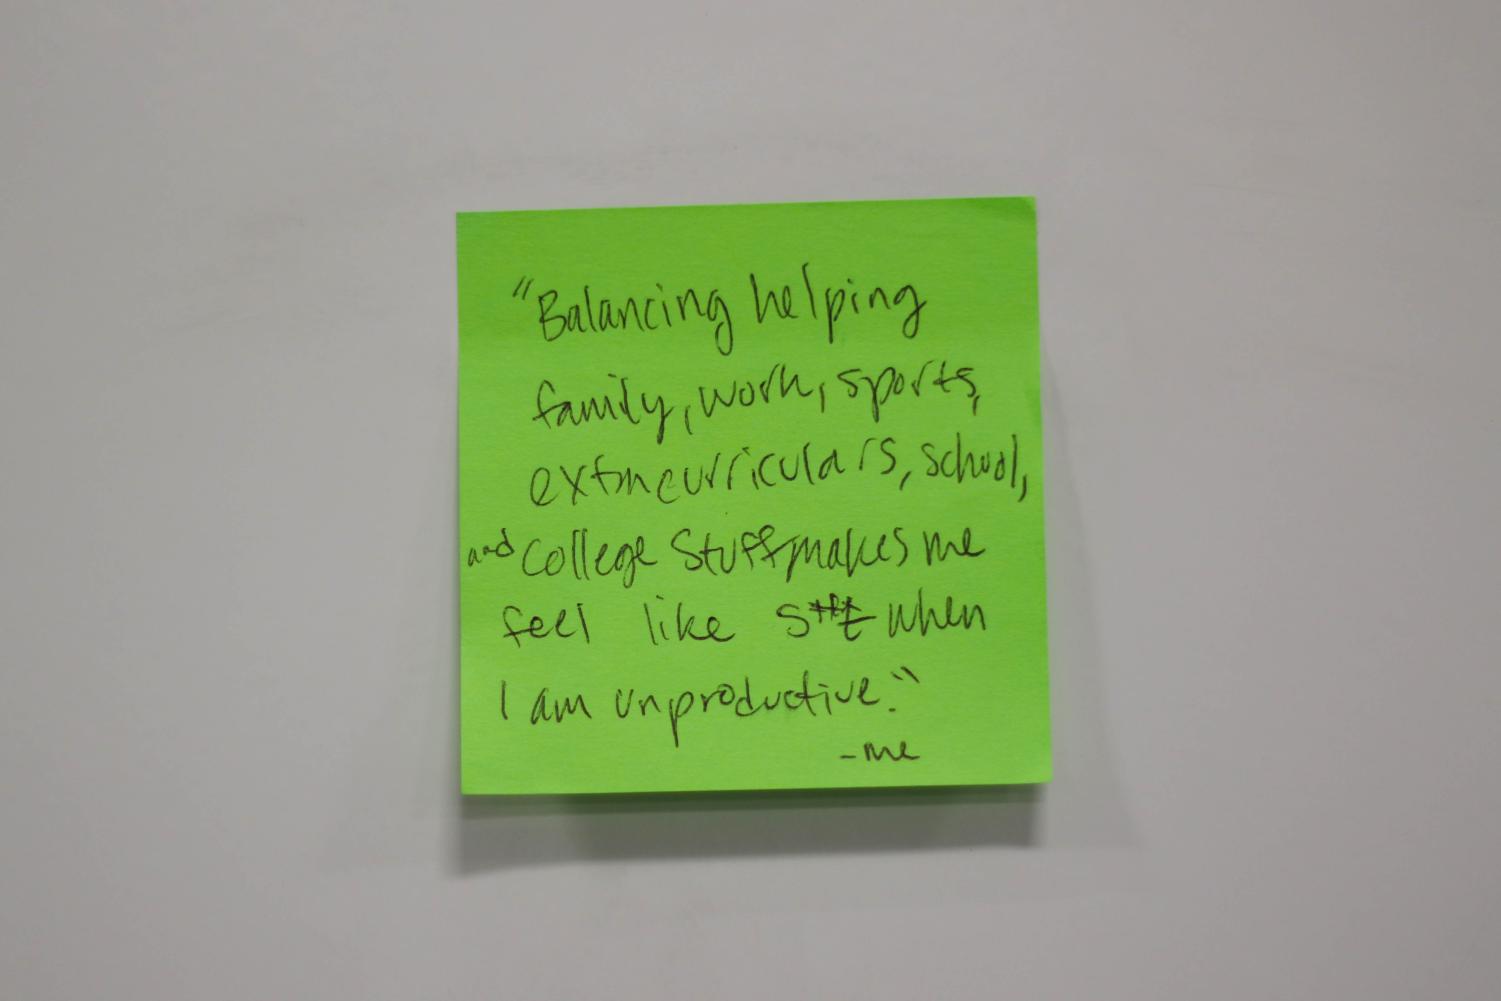 "Balancing helping
family, work, sports,
extracurriculars, school,
and college stuff makes me
feel like s**t when
I am unproductive."
-me